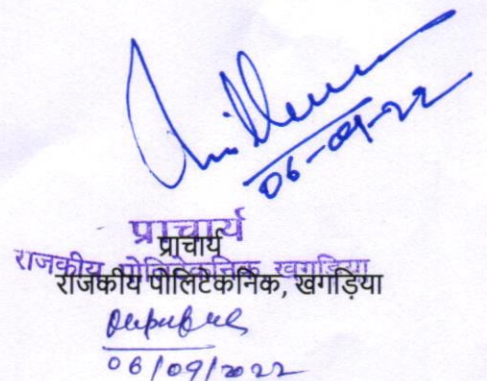 06-09-22
प्राचार्य
प्राचार्य
राजकीय पोलिटेकनिक खगड़िया
राजकीय पोलिटेकनिक, खगड़िया
06/09/2022